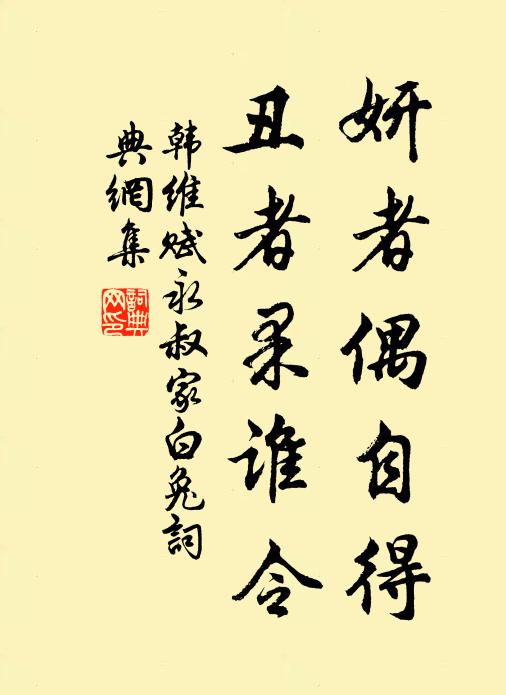 妍者偶自得
丑者果谁令
韓維赋永叔家白兔詞
典網集
詞典
网印